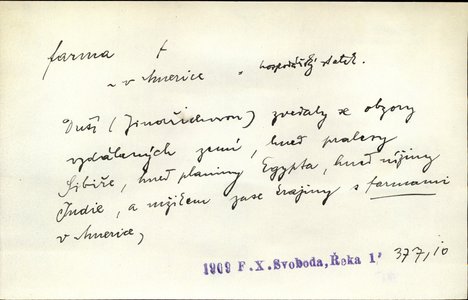 farma †
~ v Americe = hospodářský statek.
Duší (Jindřichovou) zvedaly se obzory
vzdálených zemí, hned pralesy
Sibiře, hned planiny Egypta, hned nížiny
Indie, a mžikem zase krajiny s farmami
v Americe,
1909 F.X.Svoboda, Řeka 1' 377,10